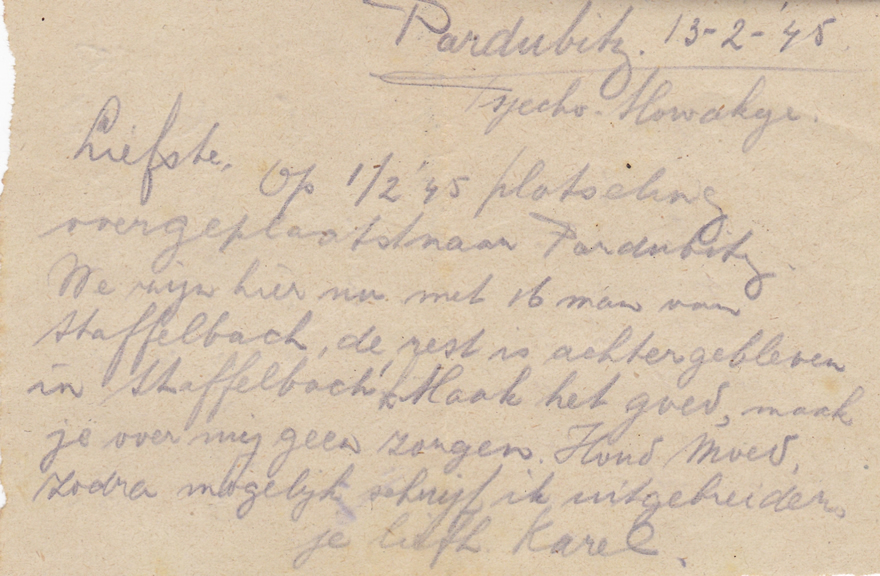 Pardubitz. 13-2-'45
Tsjecho-Slowakije.
Liefste, Op 1/2 '45 plotseling
overgeplaatst naar Pardubitz.
We zijn hier nu met 16 man van
Staffelbach, de rest is achtergebleven
in Staffelbach. Maak het goed, maak
je over mij geen zorgen. Houd Moed,
zodra mogelijk schrijf ik uitgebreider.
je liefh Karel.